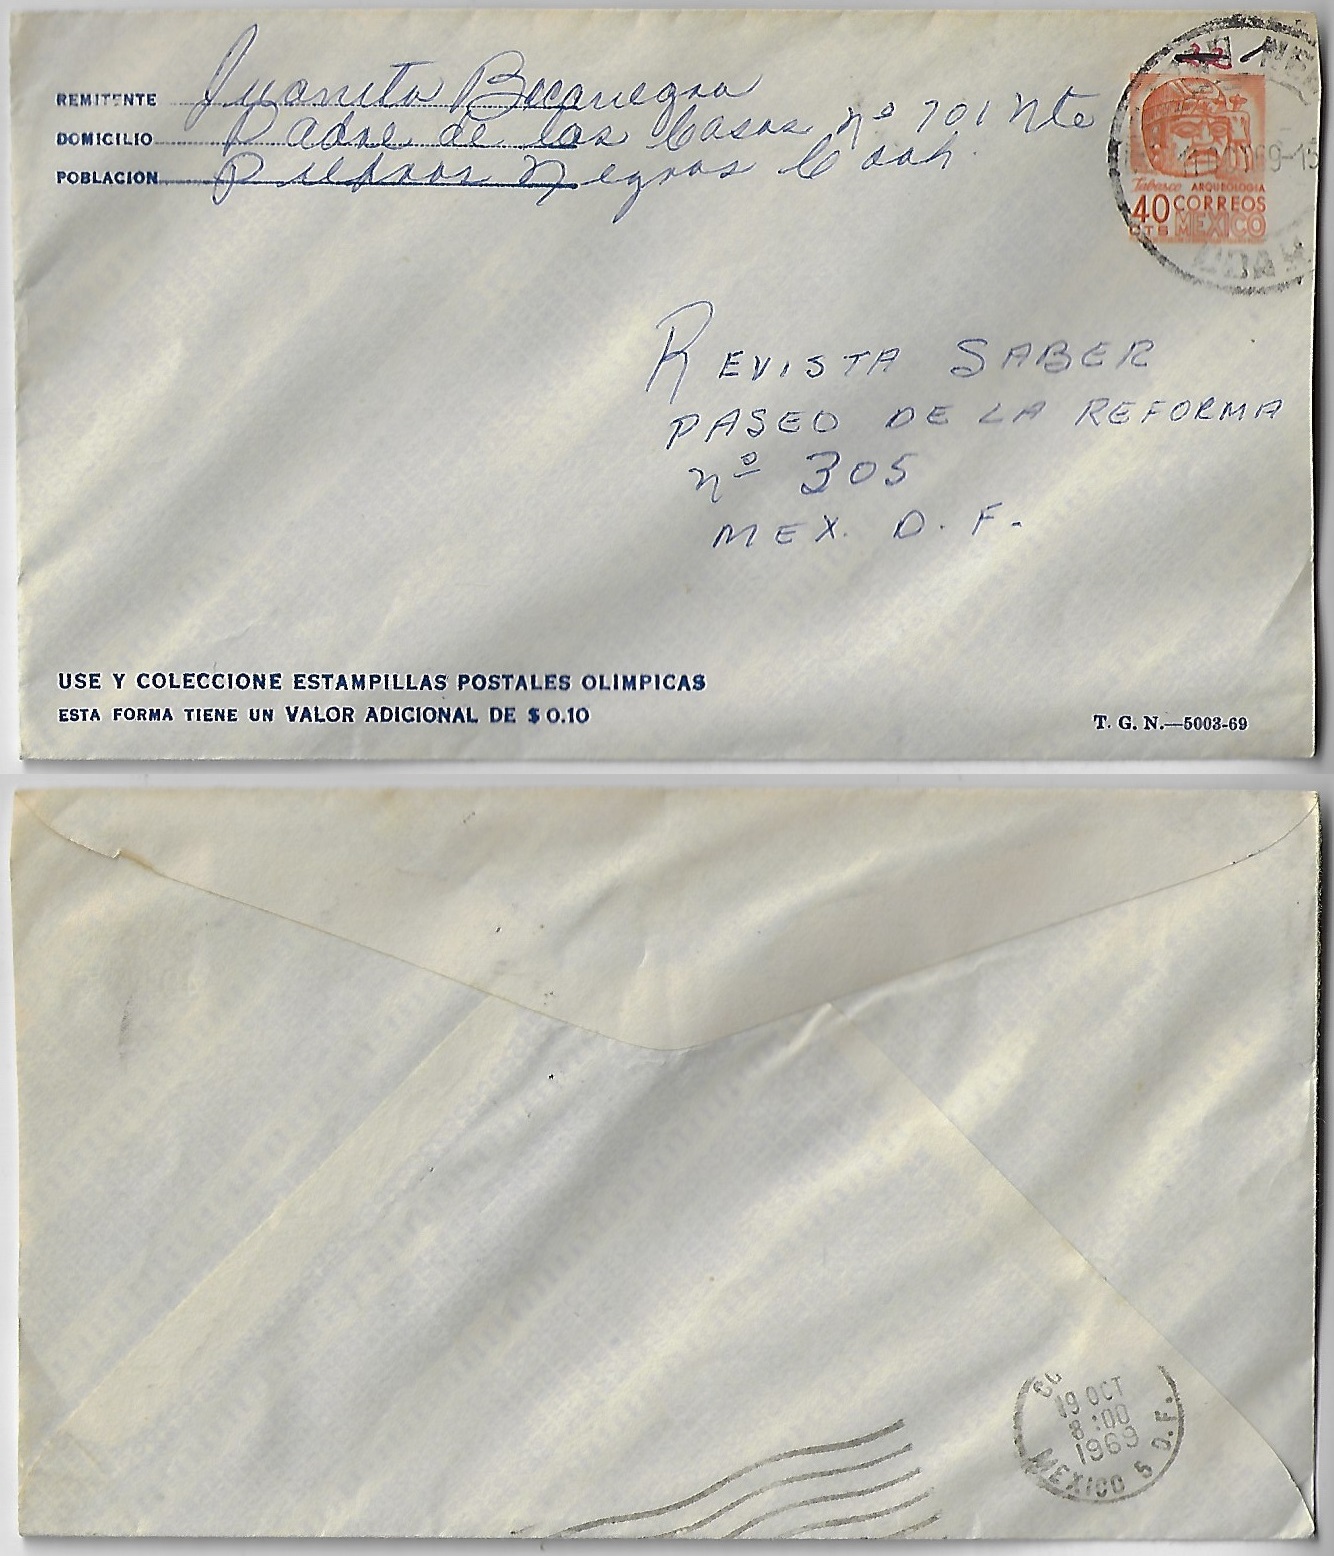 REMITENTE Juanita Bocanegra
DOMICILIO Padre de las Casas nº 701 Nte
POBLACION Piedras Negras Coah.
Tabasco ARQUEOLOGIA
40 CORREOS
CTS MEXICO
REVISTA SABER
PASEO DE LA REFORMA
nº 305
MEX. D. F.
USE Y COLECCIONE ESTAMPILLAS POSTALES OLIMPICAS
ESTA FORMA TIENE UN VALOR ADICIONAL DE $ 0.10
T. G. N.—5003-69
19 OCT
8:00
1969
MEXICO 5 D.F.